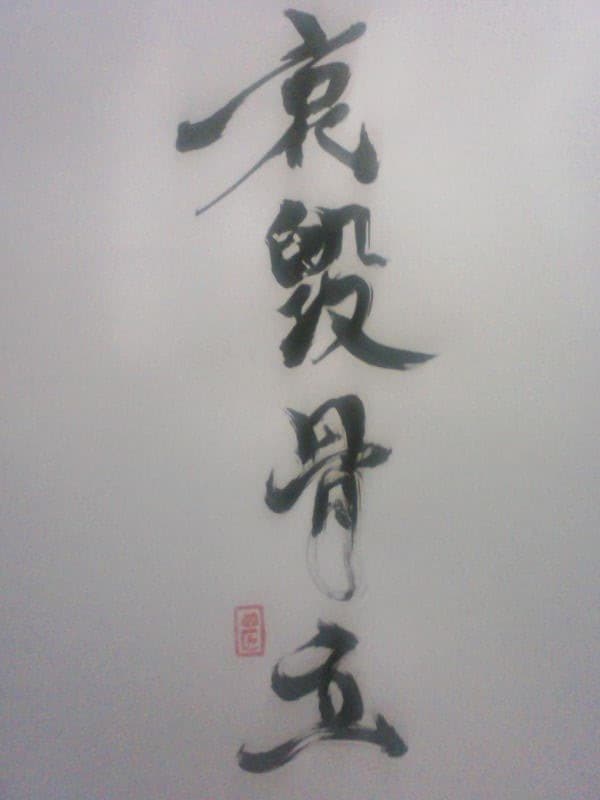 哀毀骨立